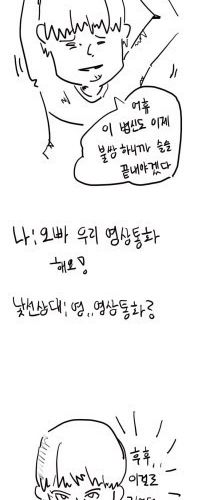 어휴
이 병신도 이제
불쌍하니까 슬슬
끝내야겠다
나: 오빠 우리 영상통화
해요!
낯선상대: 영,,영상통화?
후후,
이걸로